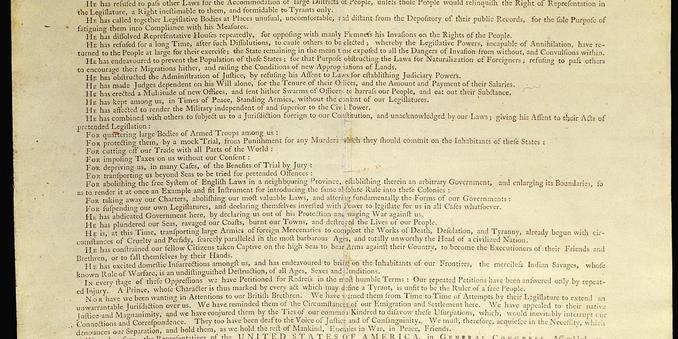 He has refused to pass other Laws for the Accommodation of large Districts of People, unless those People would relinquish the Right of Representation in
the Legislature, a Right inestimable to them, and formidable to Tyrants only.
He has called together Legislative Bodies at Places unusual, uncomfortable, and distant from the Depository of their public Records, for the sole Purpose of
fatiguing them into Compliance with his Measures.
He has dissolved Representative Houses repeatedly, for opposing with manly Firmness his Invasions on the Rights of the People.
He has refused for a long Time, after such Dissolutions, to cause others to be elected; whereby the Legislative Powers, incapable of Annihilation, have re-
turned to the People at large for their exercise; the State remaining in the mean time exposed to all the Dangers of Invasion from without, and Convulsions within.
He has endeavoured to prevent the Population of these States; for that Purpose obstructing the Laws for Naturalization of Foreigners; refusing to pass others
to encourage their Migrations hither, and raising the Conditions of new Appropriations of Lands.
He has obstructed the Administration of Justice, by refusing his Assent to Laws for establishing Judiciary Powers.
He has made Judges dependent on his Will alone, for the Tenure of their Offices, and the Amount and Payment of their Salaries.
He has erected a Multitude of new Offices, and sent hither Swarms of Officers to harrass our People, and eat out their Substance.
He has kept among us, in Times of Peace, Standing Armies, without the consent of our Legislatures.
He has affected to render the Military independent of and superior to the Civil Power.
He has combined with others to subject us to a Jurisdiction foreign to our Constitution, and unacknowledged by our Laws; giving his Assent to their Acts of
pretended Legislation:
For quartering large Bodies of Armed Troops among us:
For protecting them, by a mock Trial, from Punishment for any Murders which they should commit on the Inhabitants of these States:
For cutting off our Trade with all Parts of the World:
For imposing Taxes on us without our Consent:
For depriving us, in many Cases, of the Benefits of Trial by Jury:
For transporting us beyond Seas to be tried for pretended Offences:
For abolishing the free System of English Laws in a neighbouring Province, establishing therein an arbitrary Government, and enlarging its Boundaries, so
as to render it at once an Example and fit Instrument for introducing the same absolute Rule into these Colonies:
For taking away our Charters, abolishing our most valuable Laws, and altering fundamentally the Forms of our Governments:
For suspending our own Legislatures, and declaring themselves invested with Power to legislate for us in all Cases whatsoever.
He has abdicated Government here, by declaring us out of his Protection and waging War against us.
He has plundered our Seas, ravaged our Coasts, burnt our Towns, and destroyed the Lives of our People.
He is, at this Time, transporting large Armies of foreign Mercenaries to compleat the Works of Death, Desolation, and Tyranny, already begun with cir-
cumstances of Cruelty and Perfidy, scarcely paralleled in the most barbarous Ages, and totally unworthy the Head of a civilized Nation.
He has constrained our fellow Citizens taken Captive on the high Seas to bear Arms against their Country, to become the Executioners of their Friends and
Brethren, or to fall themselves by their Hands.
He has excited domestic Insurrections amongst us, and has endeavoured to bring on the Inhabitants of our Frontiers, the merciless Indian Savages, whose
known Rule of Warfare, is an undistinguished Destruction, of all Ages, Sexes and Conditions.
In every stage of these Oppressions we have Petitioned for Redress in the most humble Terms: Our repeated Petitions have been answered only by repeat-
ed Injury. A Prince, whose Character is thus marked by every act which may define a Tyrant, is unfit to be the Ruler of a free People.
Nor have we been wanting in Attentions to our British Brethren. We have warned them from Time to Time of Attempts by their Legislature to extend an
unwarrantable Jurisdiction over us. We have reminded them of the Circumstances of our Emigration and Settlement here. We have appealed to their native
Justice and Magnanimity, and we have conjured them by the Ties of our common Kindred to disavow these Usurpations, which, would inevitably interrupt our
Connections and Correspondence. They too have been deaf to the Voice of Justice and of Consanguinity. We must, therefore, acquiesce in the Necessity, which
denounces our Separation, and hold them, as we hold the rest of Mankind, Enemies in War, in Peace, Friends.
Representatives of the UNITED STATES OF AMERICA, in GENERAL CONGRESS,